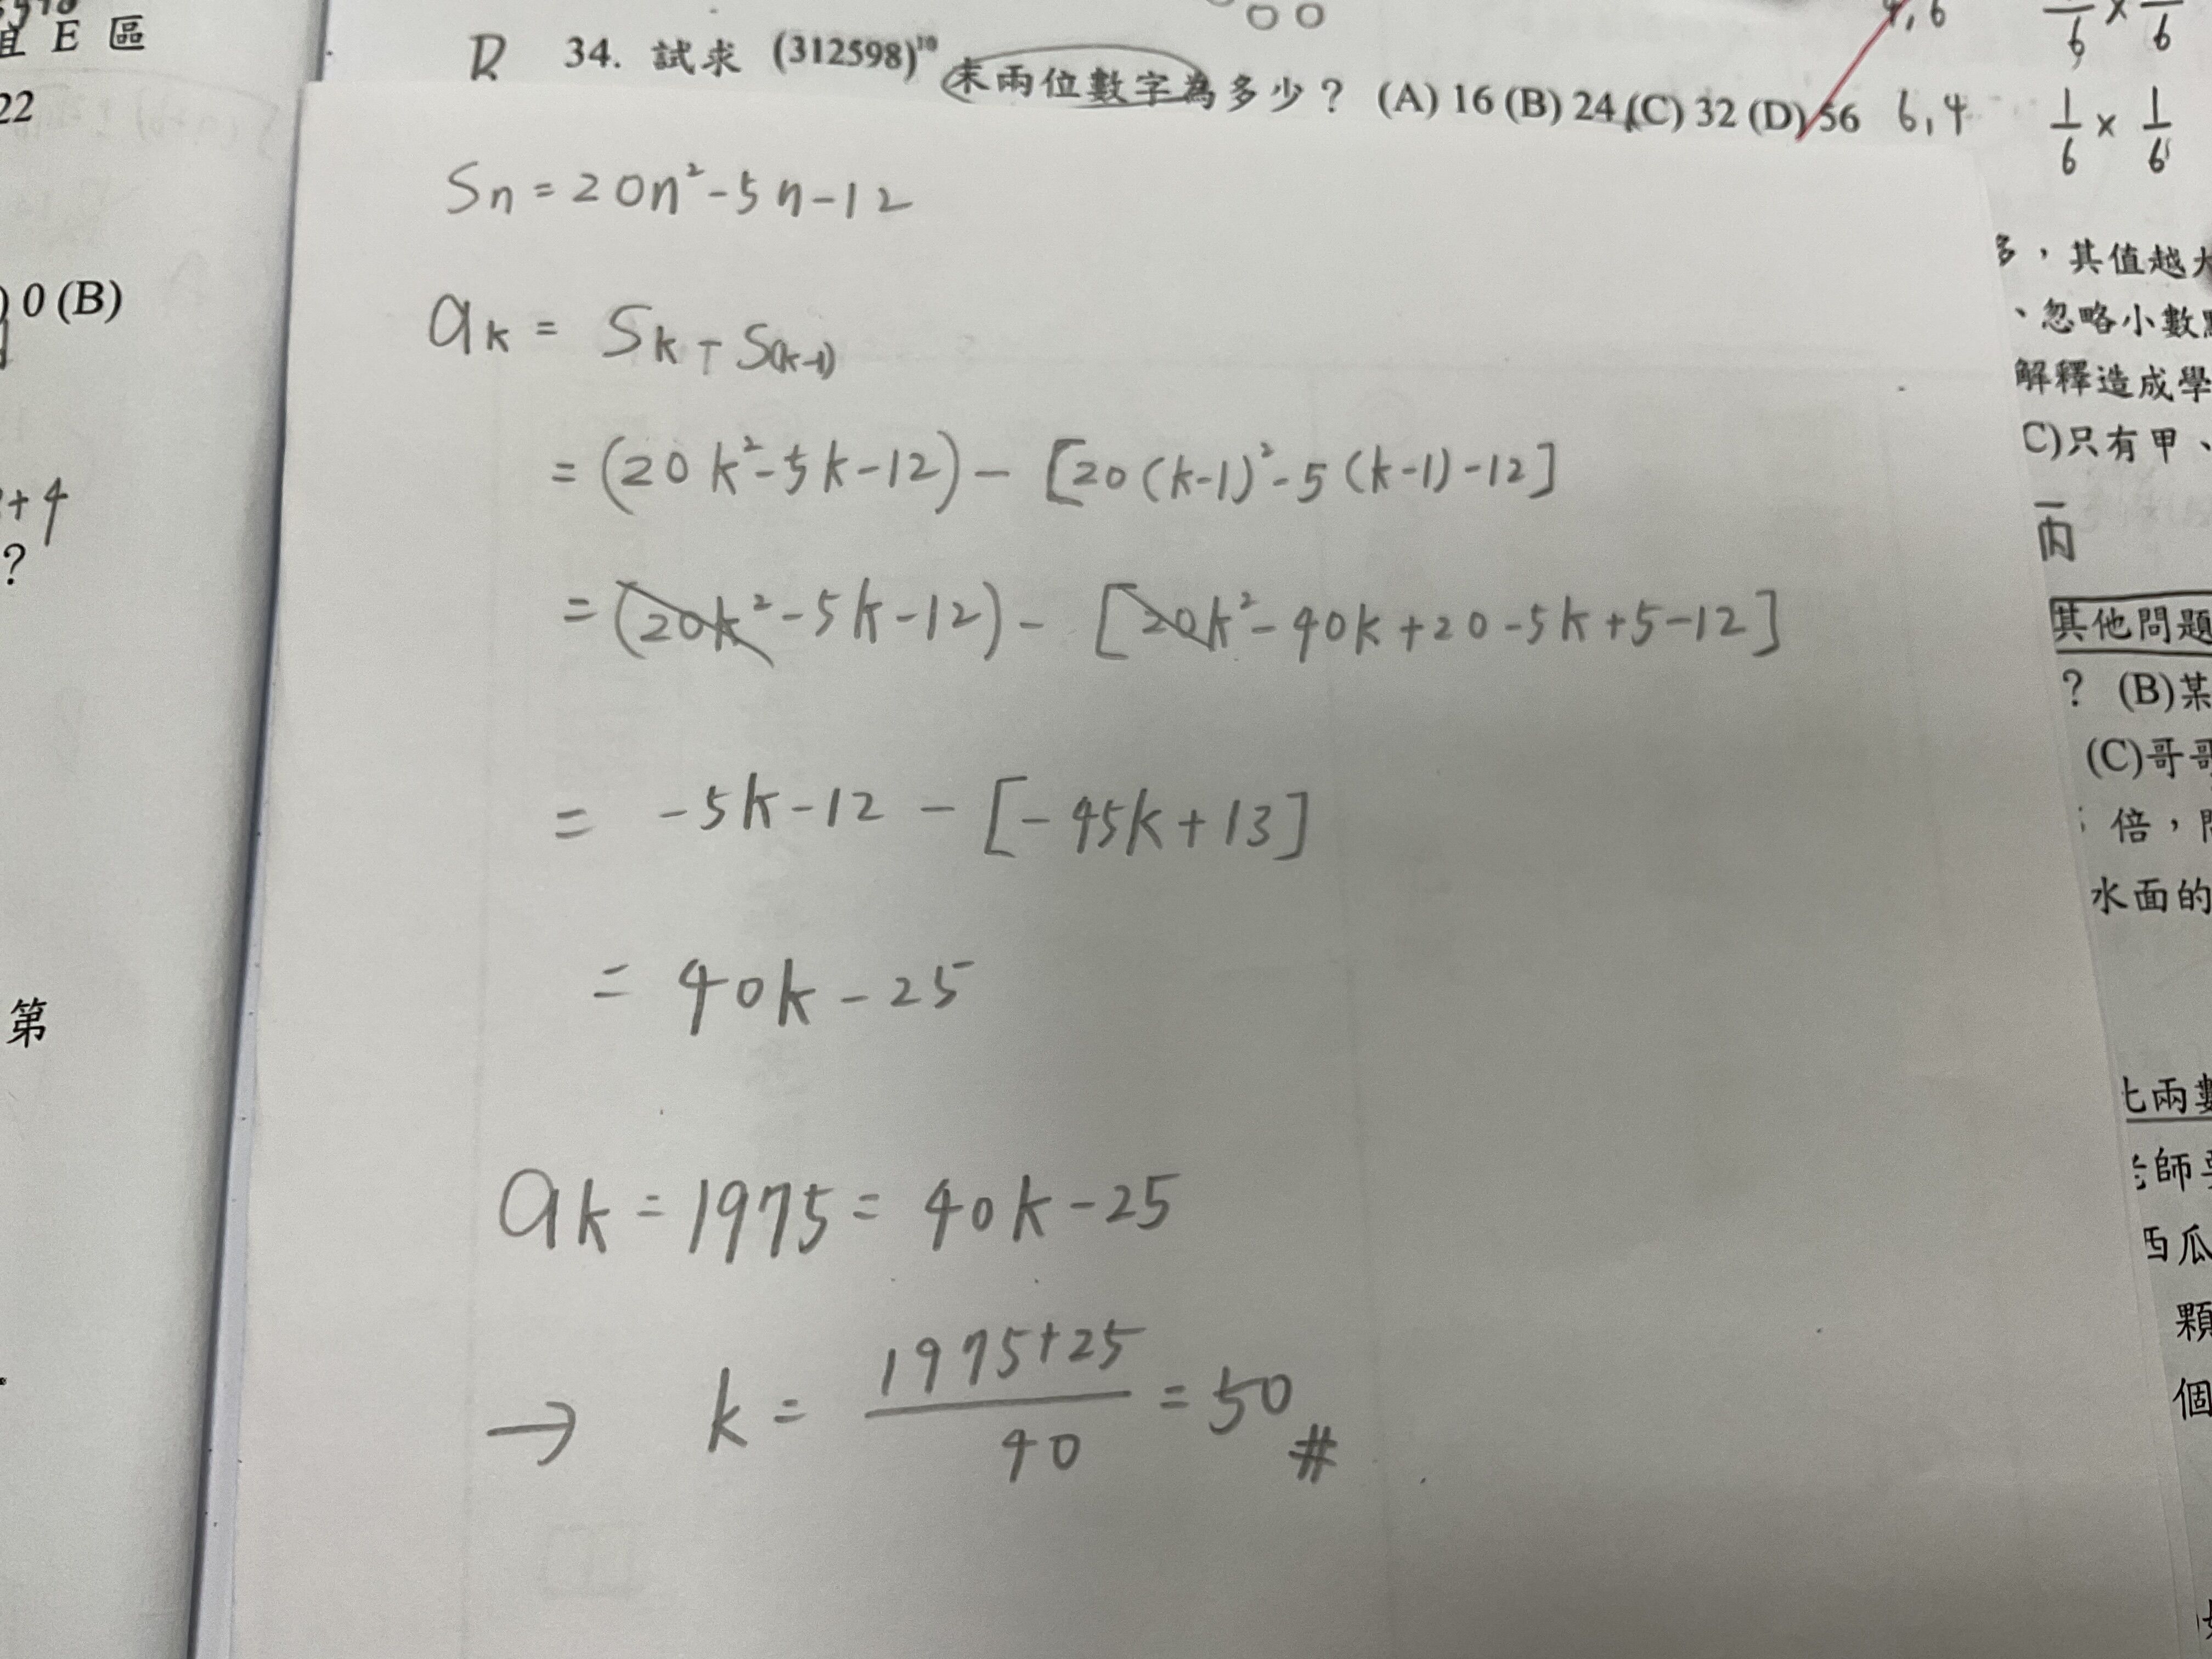 且 E 區
22
) 0 (B)
+ 4
?
第
D 34. 試求 (312598)¹⁰ 末兩位數字為多少？ (A) 16 (B) 24 (C) 32 (D) 56 6,4
Sn = 20n² - 5n - 12
ak = Sk - S(k-1)
= (20k² - 5k - 12) - [20(k-1)² - 5(k-1) - 12]
= (20k² - 5k - 12) - [20k² - 40k + 20 - 5k + 5 - 12]
= -5k - 12 - [-45k + 13]
= 40k - 25
ak = 1975 = 40k - 25
→ k = \frac{1975+25}{40} = 50 #
\frac{1}{6} × \frac{1}{6}
多，其值越大
、忽略小數
解釋造成學
C)只有甲、
丙
其他問題
? (B)某
(C)哥哥
倍，
水面的
比兩數
老師
西瓜
顆
個